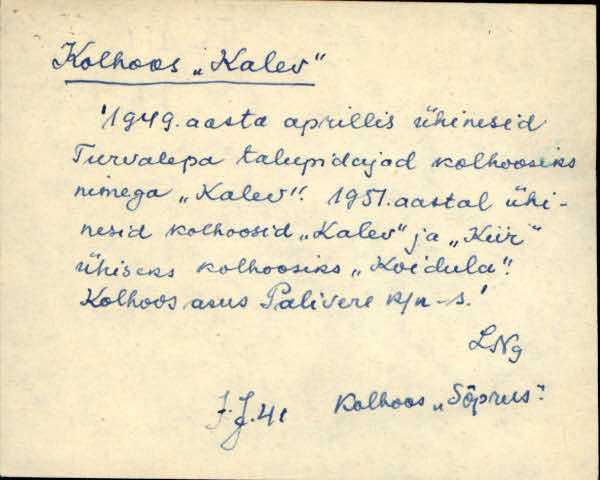 Kolhoos „Kalev"
1949. aasta aprillis ühinesid
Turvalepa talupidajad kolhoosiks
nimega „Kalev". 1951. aastal ühi-
nesid kolhoosid „Kalev" ja „Kiir"
ühiseks kolhoosiks „Koidula".
Kolhoos asus Palivere k/n-s.
LNg
Kolhoos „Sõprus".